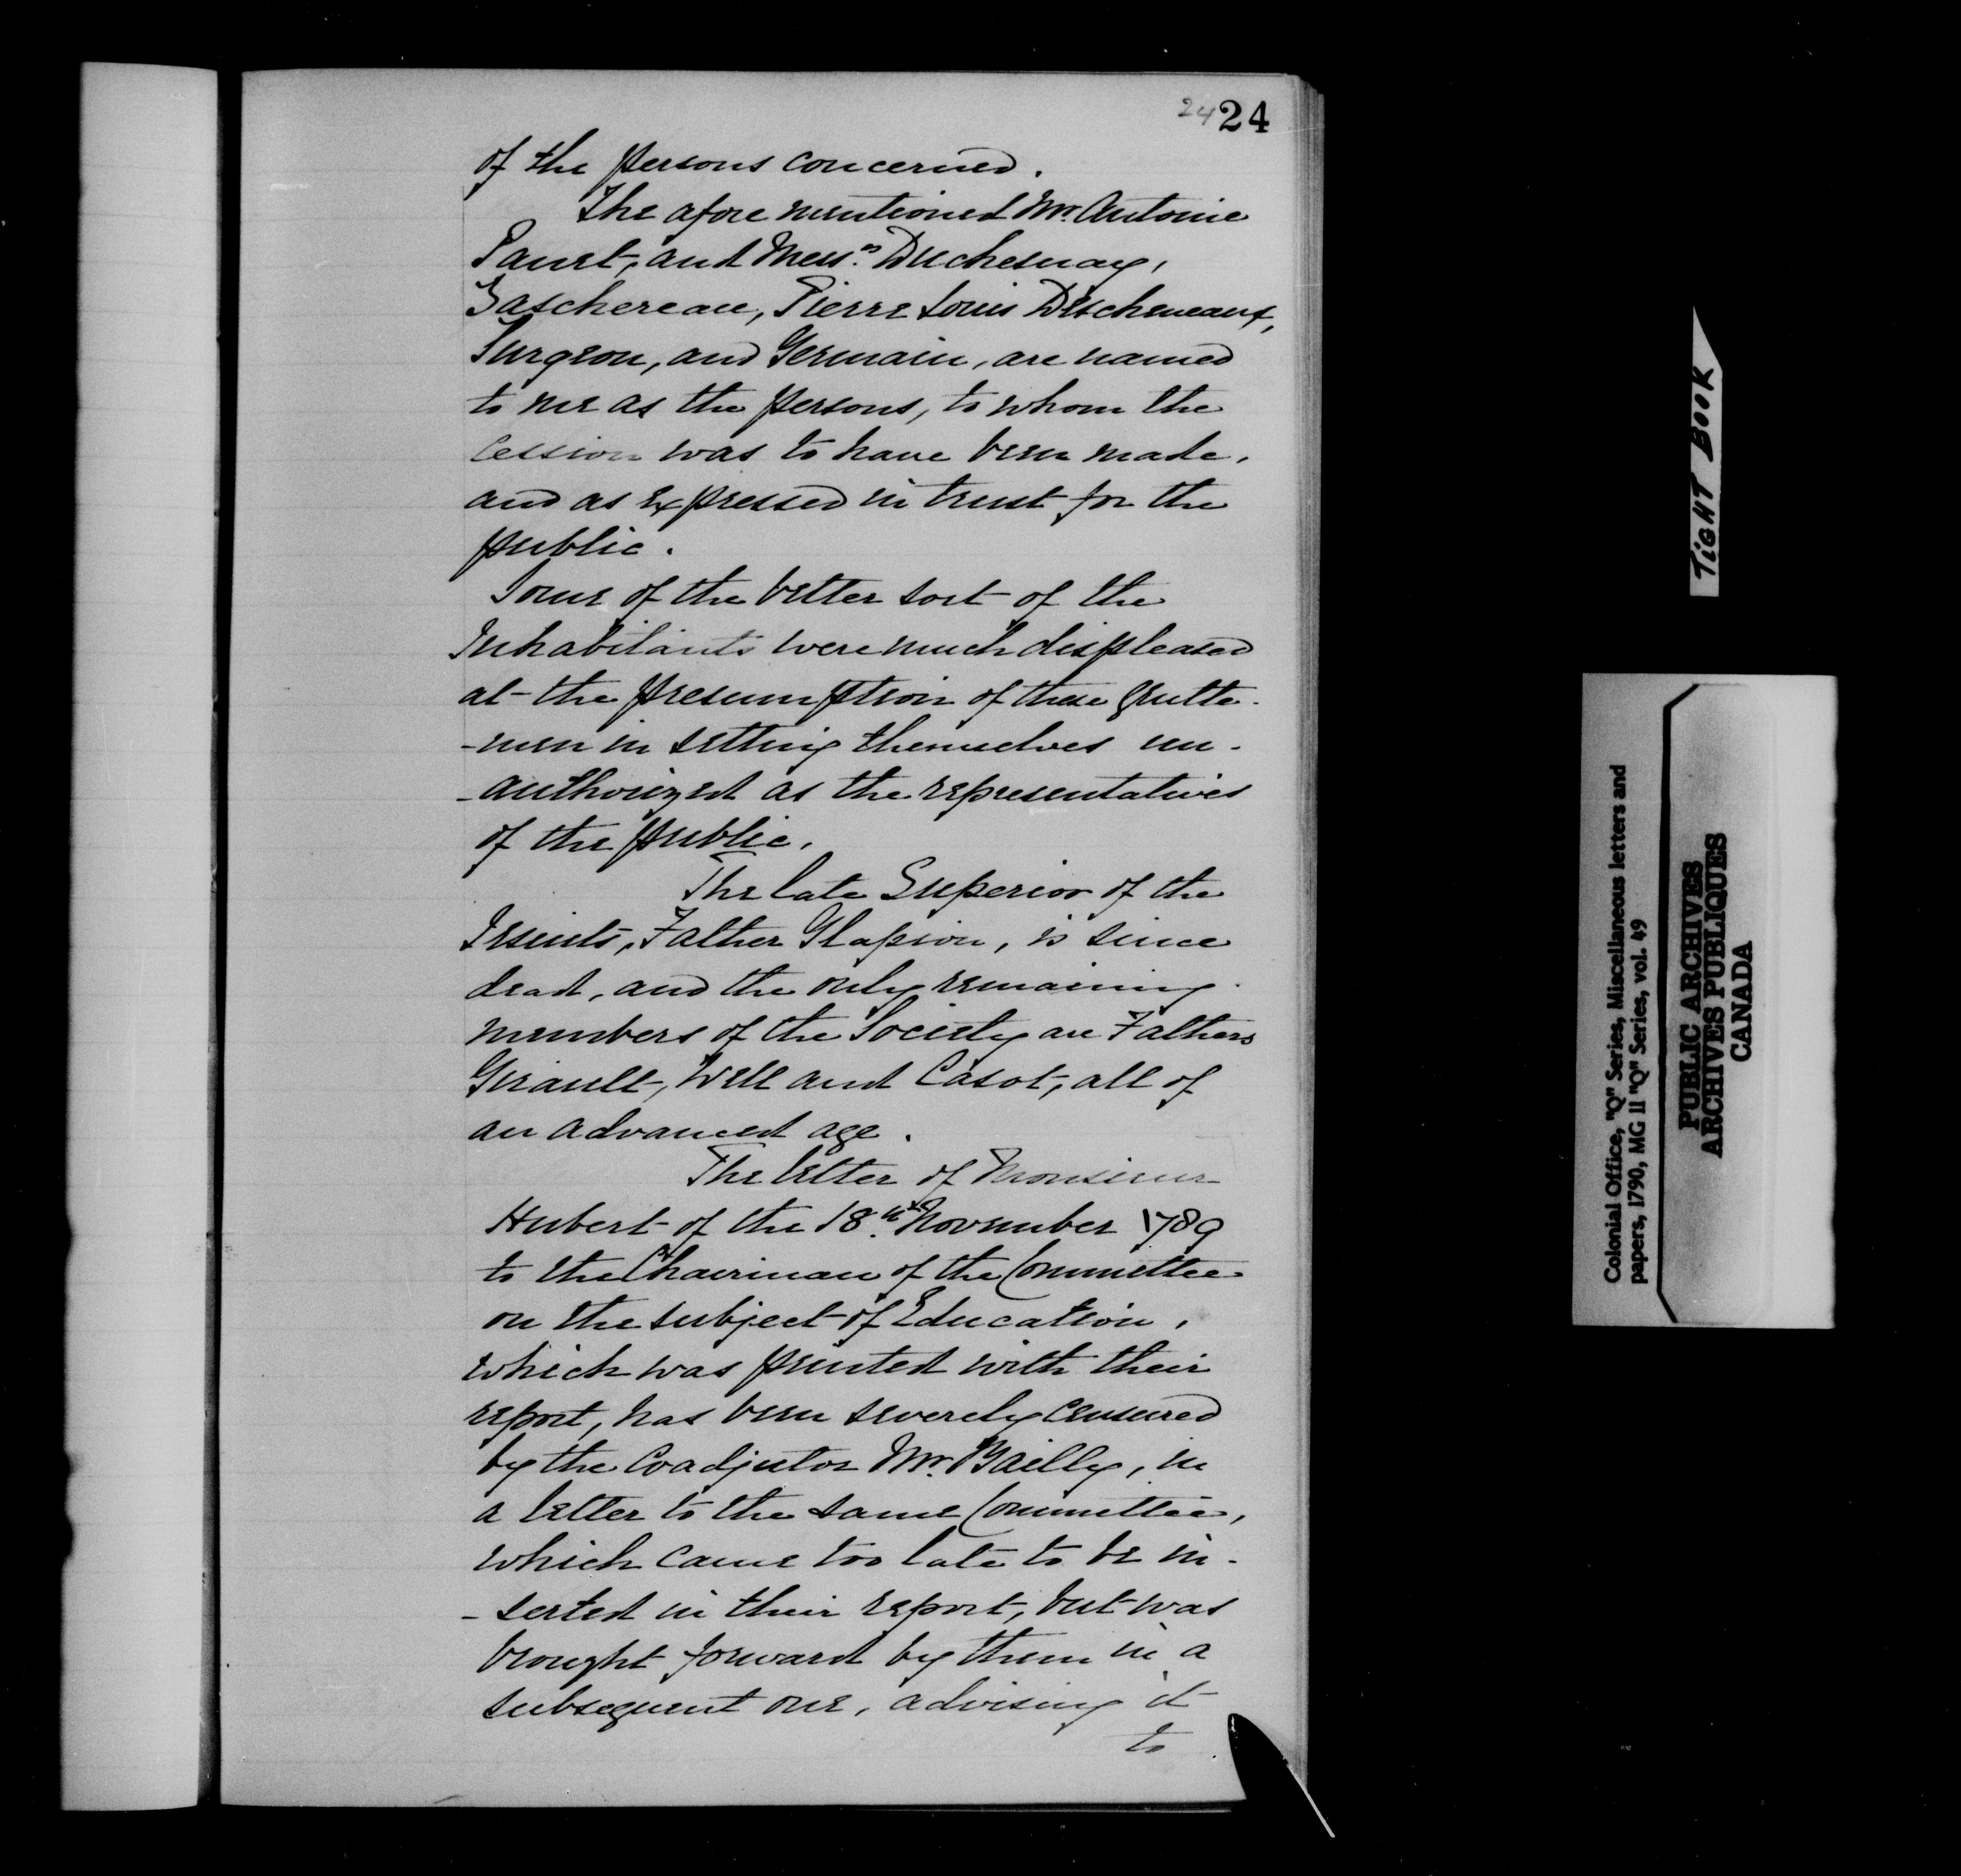 24 24
of the persons concerned.
The afore mentioned Mr. Antoine
Panet, and Mess.rs Duchesnay,
Taschereau, Pierre Louis Descheneaux,
Surgeon, and Germain, are named
to me as the persons, to whom the
cession was to have been made,
and as expressed in trust for the
public.
Some of the better sort of the
Inhabitants were much displeased
at the presumption of these Gentle-
-men in setting themselves un-
-authorized as the representatives
of the public.
The late Superior of the
Jesuits, Father Glapion, is since
dead, and the only remaining
members of the Society are Fathers
Girault, Well and Casot, all of
an advanced age.
The letter of Monsieur
Hubert of the 18.th November 1789
to the Chairman of the Committee
on the subject of Education,
which was printed with their
report, has been severely censured
by the Coadjutor Mr. Bailly, in
a letter to the same Committee,
which came too late to be in-
-serted in their report, but was
brought forward by them in a
subsequent one, advising it
to
TIGHT BOOK
Colonial Office, "Q" Series, Miscellaneous letters and
papers, 1790, MG 11 "Q" Series, vol. 49
PUBLIC ARCHIVES
ARCHIVES PUBLIQUES
CANADA